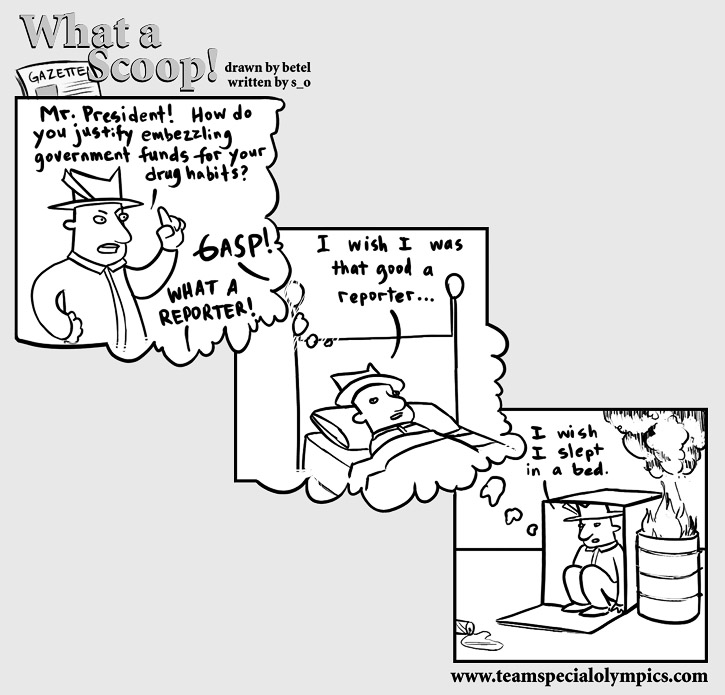 What a
Scoop!
GAZETTE
drawn by betel
written by s_o
Mr. President! How do
you justify embezzling
government funds for your
drug habits?
GASP!
WHAT A
REPORTER!
I wish I was
that good a
reporter...
I wish
I slept
in a bed.
www.teamspecialolympics.com